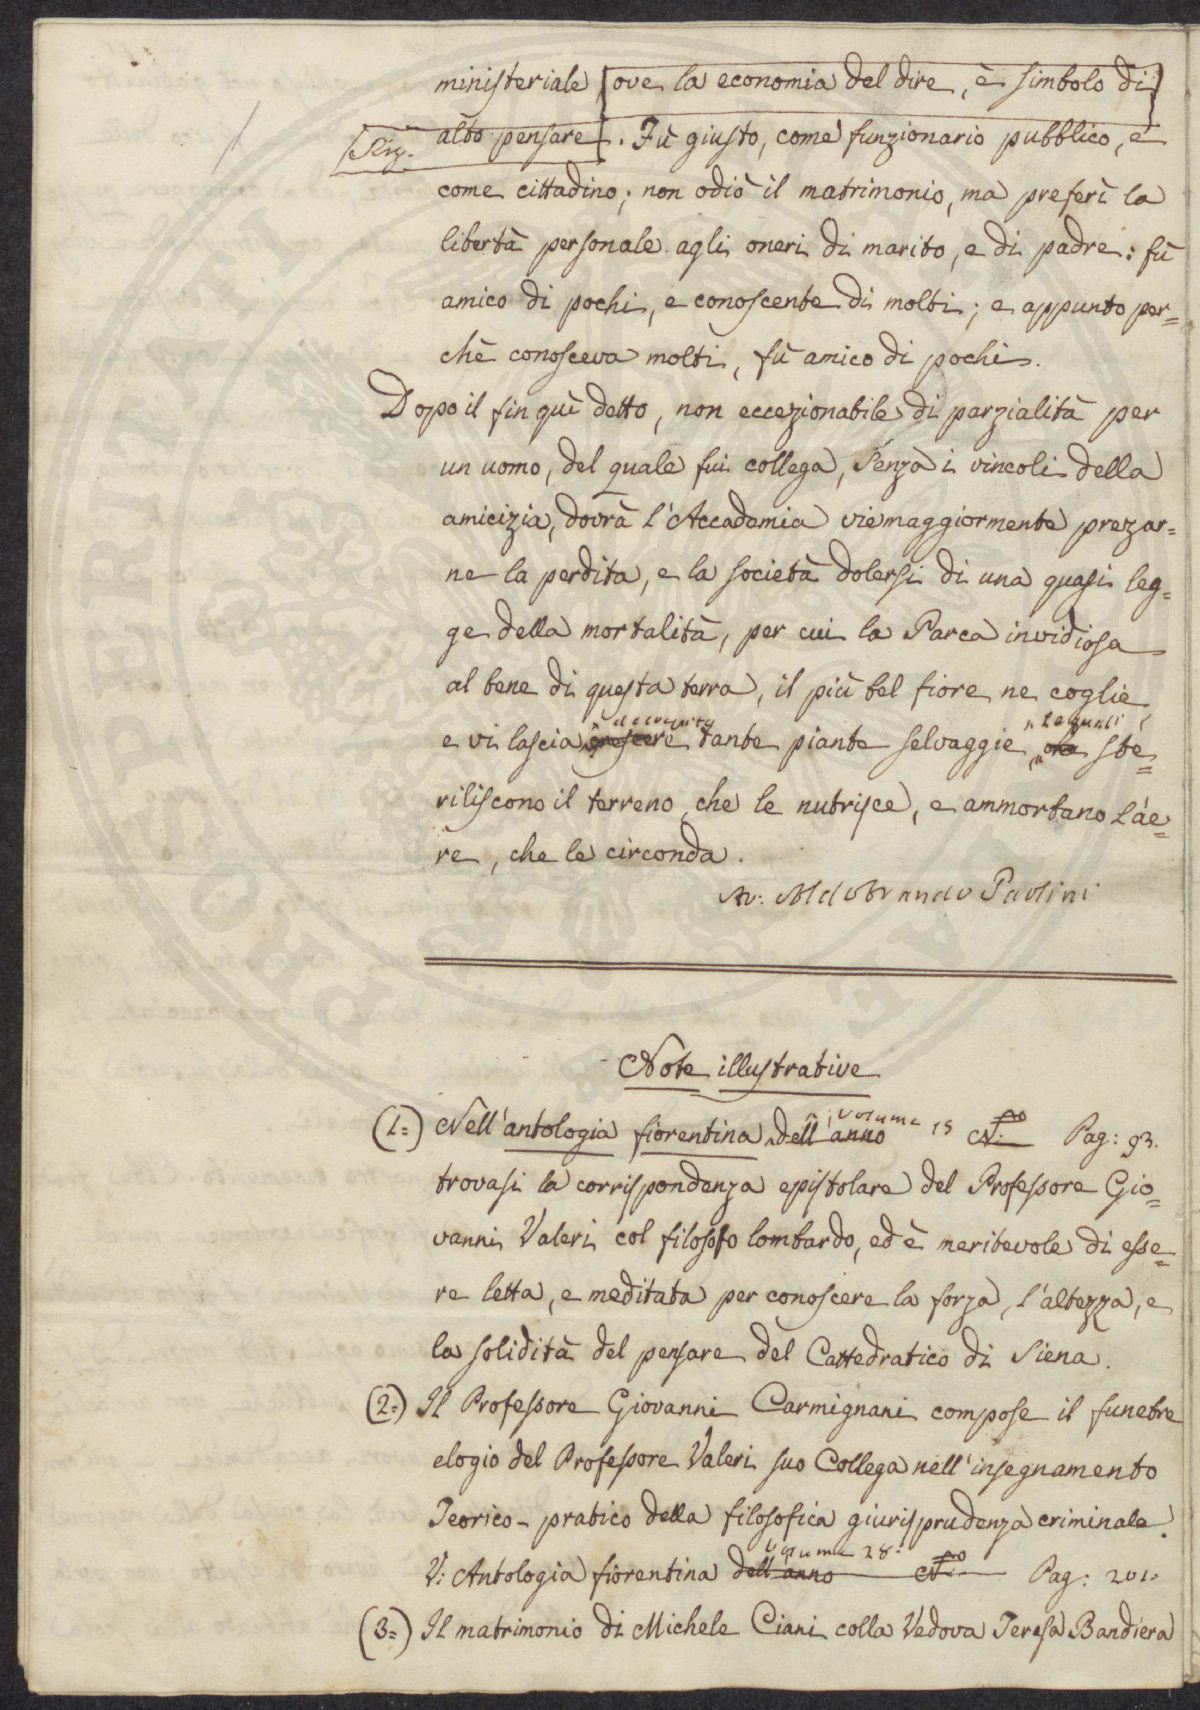 ministeriale [ove la economia del dire, è simbolo di
alto pensare]. Fù giusto, come funzionario pubblico, e
come cittadino; non odiò il matrimonio, ma preferì la
libertà personale agli oneri di marito, e di padre: fù
amico di pochi, e conoscente di molti; e appunto per=
chè conosceva molti, fù amico di pochi.
Dopo il fin quì detto, non eccezionabile di parzialità per
un uomo, del quale fui collega, senza i vincoli della
amicizia, dovrà l'Accademia viemaggiormente prezar=
ne la perdita, e la società dolersi di una quasi leg=
ge della mortalità, per cui la Parca invidiosa
al bene di questa terra, il più bel fiore ne coglie
e vi lascia crescere tante piante selvaggie, le quali ste=
riliscono il terreno che le nutrisce, e ammorbano l'ae=
re, che le circonda.
Av: Aldobrando Paolini
Note illustrative
(1=) Nell'antologia fiorentina dell'anno volume 15 N:ro Pag: 93.
trovasi la corrispondenza epistolare del Professore Gio=
vanni Valeri col filosofo lombardo, ed è meritevole di esse=
re letta, e meditata per conoscere la forza, l'altezza, e
la solidità del pensare del Cattedratico di Siena.
(2=) Il Professore Giovanni Carmignani compose il funebre
elogio del Professore Valeri suo Collega nell'insegnamento
Teorico-pratico della filosofica giurisprudenza criminale.
V: Antologia fiorentina dell'anno Volume 28: N:ro Pag: 201.
(3=) Il matrimonio di Michele Ciani colla Vedova Teresa Bandiera